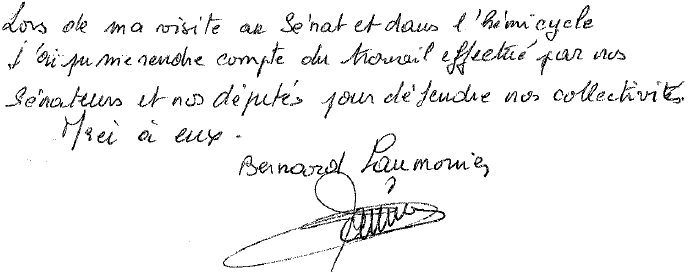 Lors de ma visite au Sénat et dans l'hémicycle
j'ai pu me rendre compte du travail effectué par nos
Sénateurs et nos députés pour défendre nos collectivités.
Merci à eux.
Bernard Laumonier